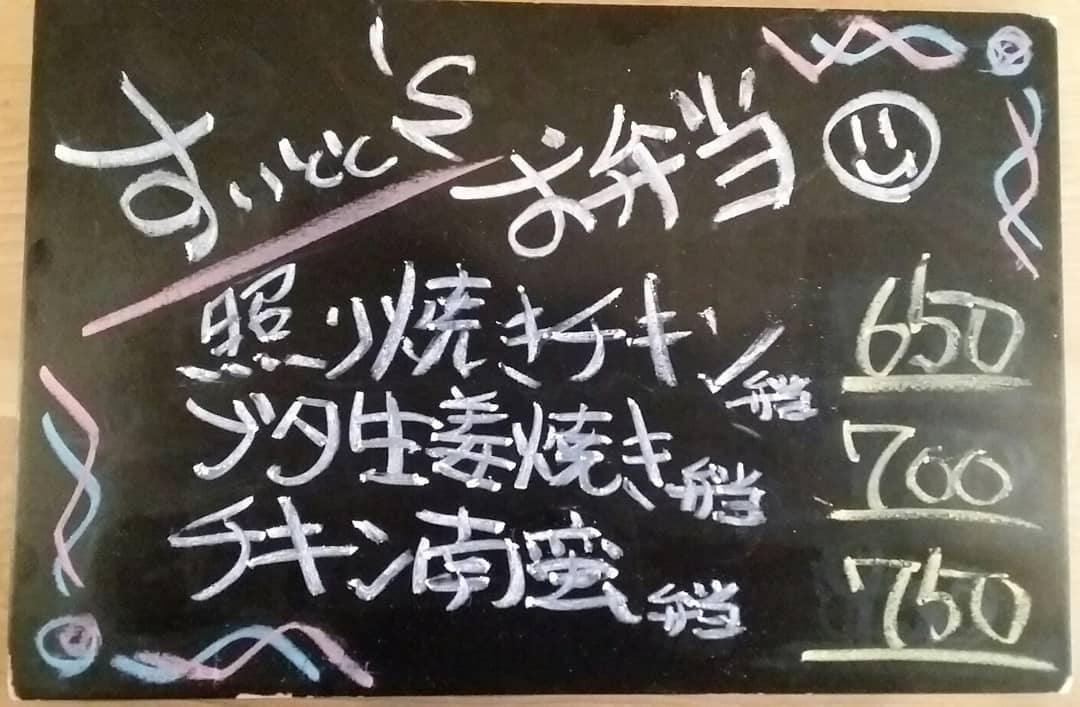 すいとん'S お弁当
照り焼きチキン弁当 650
ブタ生姜焼き弁当 700
チキン南蛮弁当 750